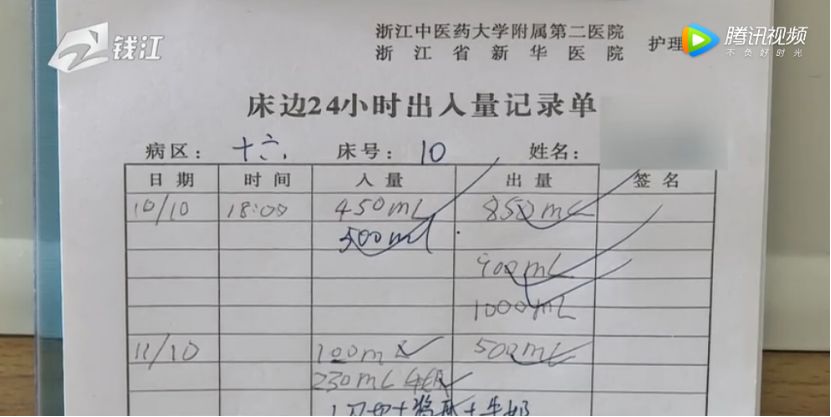 钱江
腾讯视频
不负好时光
浙江中医药大学附属第二医院
浙江省新华医院 护理
床边24小时出入量记录单
病区： 十六 床号： 10 姓名：
日期 时间 入量 出量 签名
10/10 18:00 450mL 850mL
500ml
400mL
1000mL
11/10 100ml 500mL
230mL
牛奶